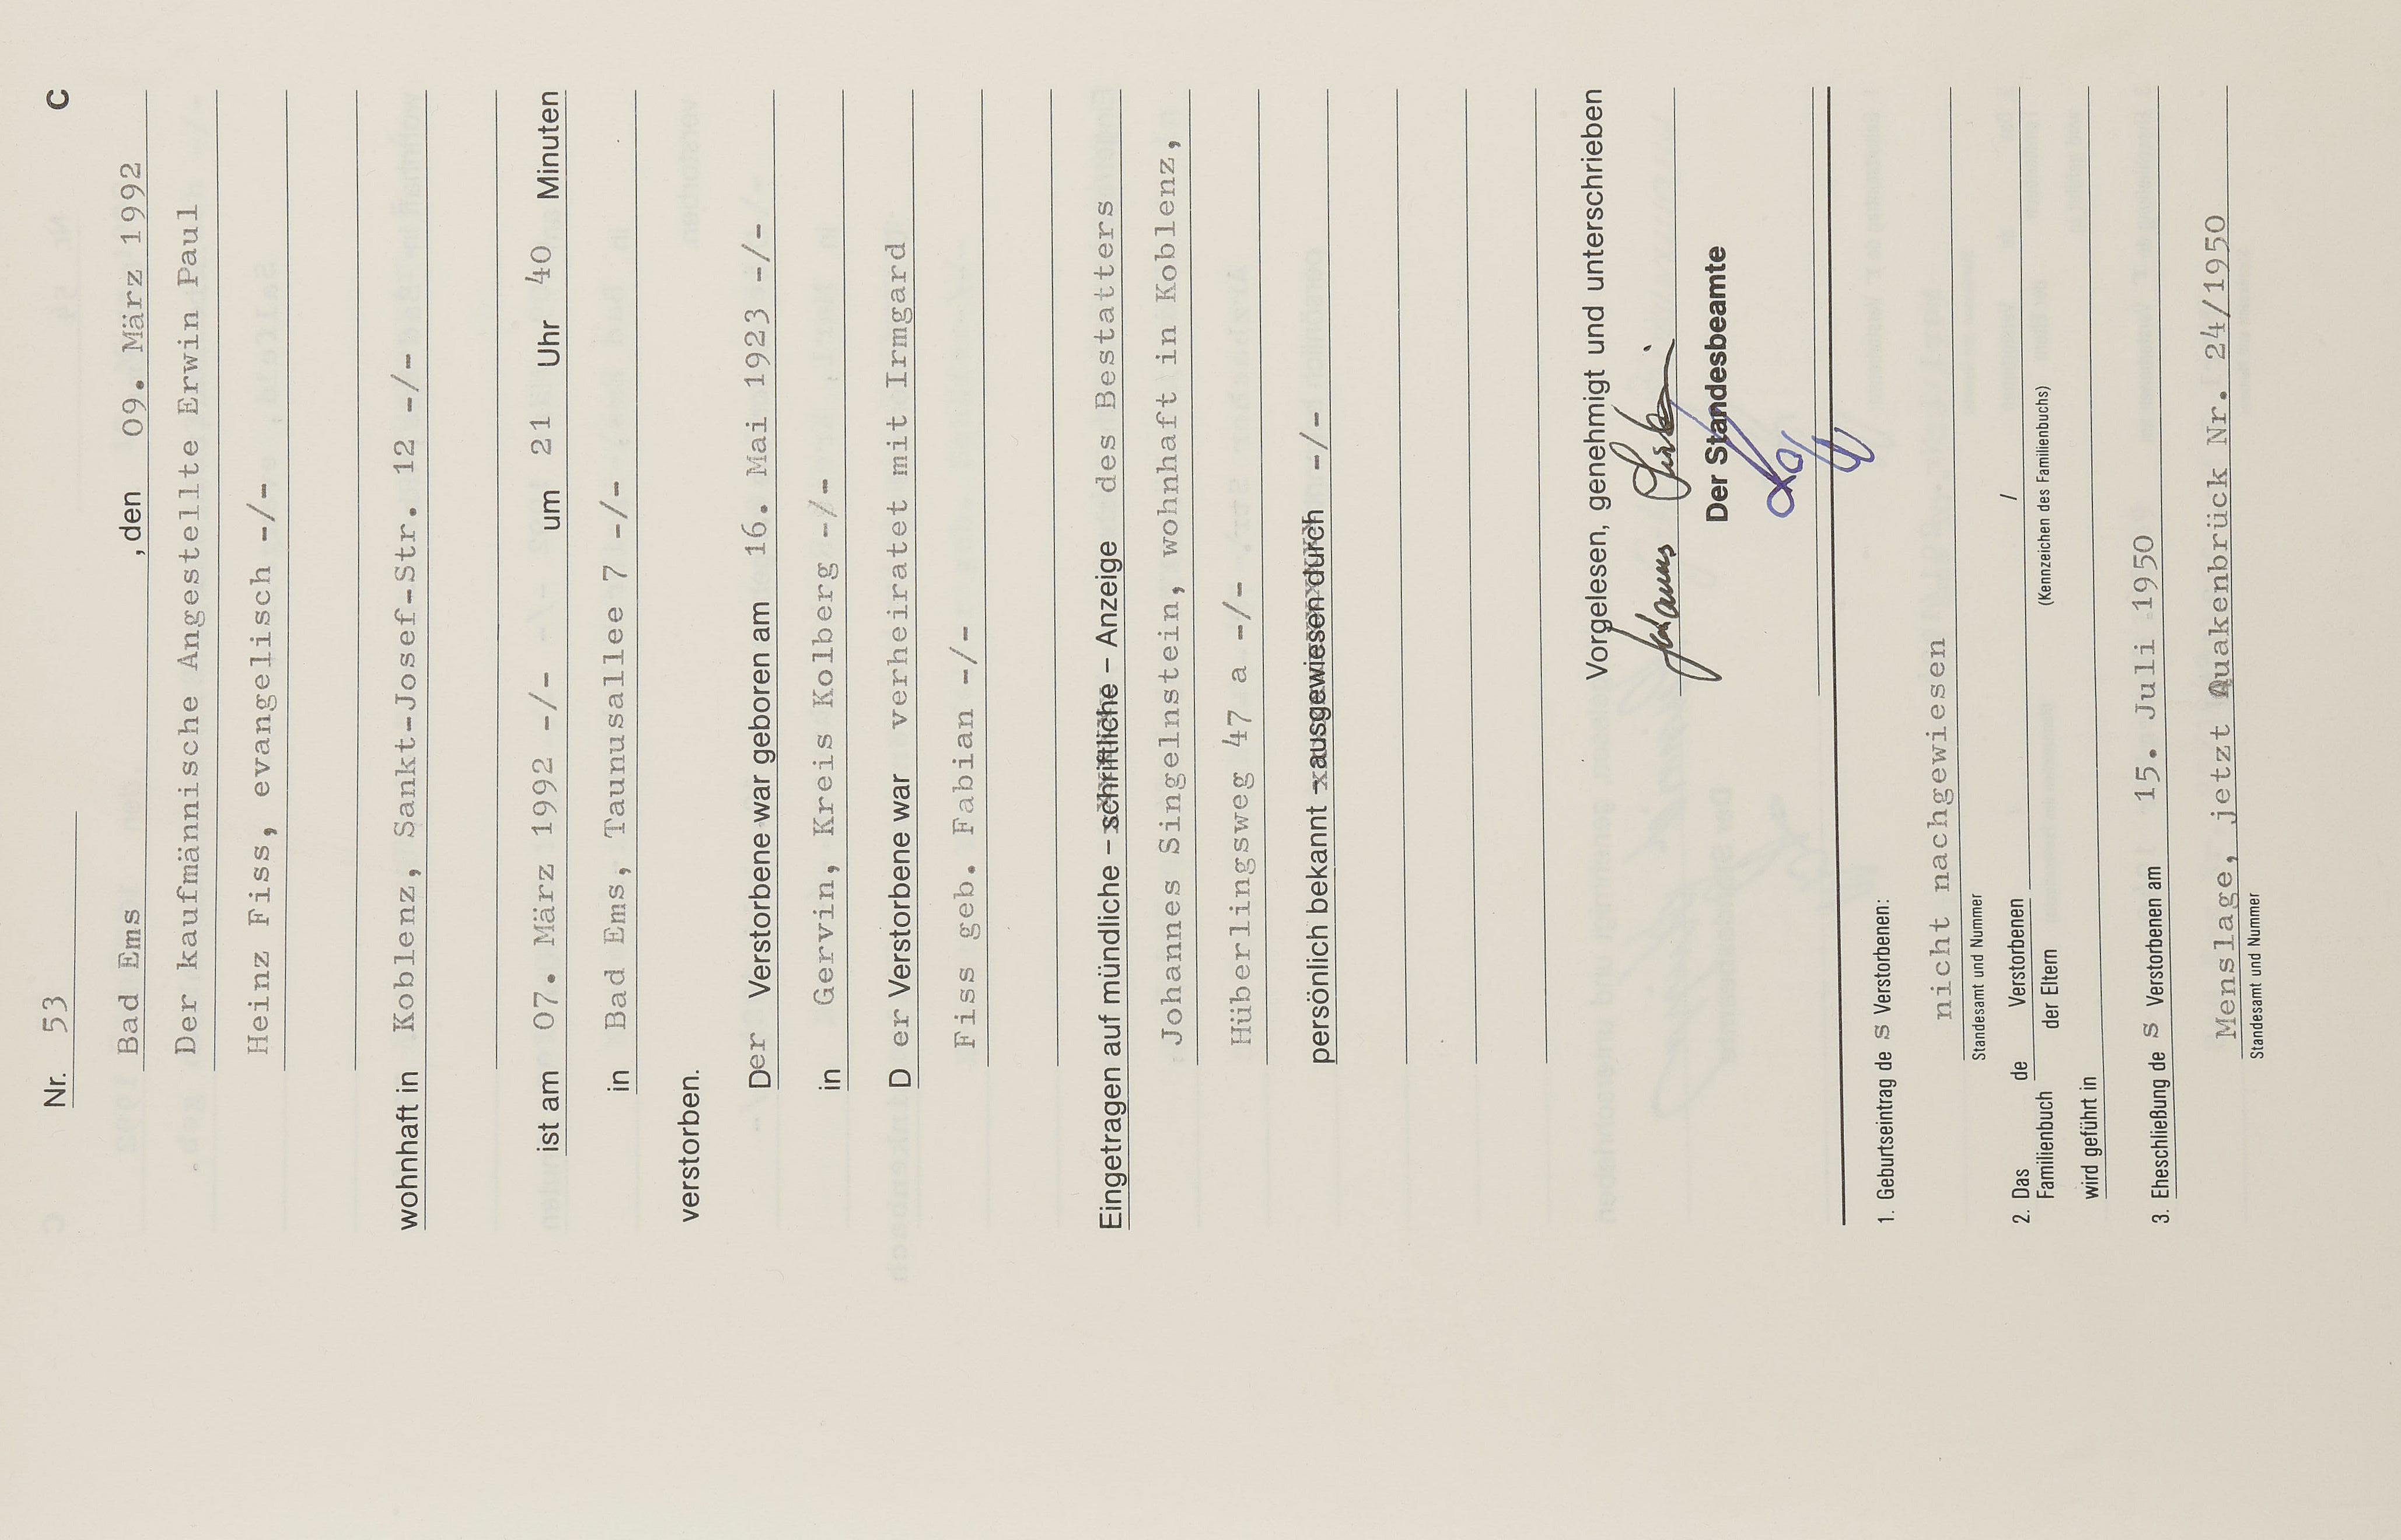 Nr. 53 C
Bad Ems , den 09. März 1992
Der kaufmännische Angestellte Erwin Paul
Heinz Fiss, evangelisch -/-
wohnhaft in Koblenz, Sankt-Josef-Str. 12 -/-
ist am 07. März 1992 -/- um 21 Uhr 40 Minuten
in Bad Ems, Taunusallee 7 -/-
verstorben.
Der Verstorbene war geboren am 16. Mai 1923 -/-
in Gervin, Kreis Kolberg -/-
D er Verstorbene war verheiratet mit Irmgard
Fiss geb. Fabian -/-
Eingetragen auf mündliche – schriftliche – Anzeige des Bestatters
Johannes Singelnstein, wohnhaft in Koblenz,
Hüberlingsweg 47 a -/-
persönlich bekannt – ausgewiesen durch -/-
Vorgelesen, genehmigt und unterschrieben
Johannes
Der Standesbeamte
1. Geburtseintrag de s Verstorbenen:
nicht nachgewiesen
Standesamt und Nummer
2. Das Familienbuch de Verstorbenen /
der Eltern (Kennzeichen des Familienbuchs)
wird geführt in
3. Eheschließung de s Verstorbenen am 15. Juli 1950
Menslage, jetzt Quakenbrück Nr. 24/1950
Standesamt und Nummer